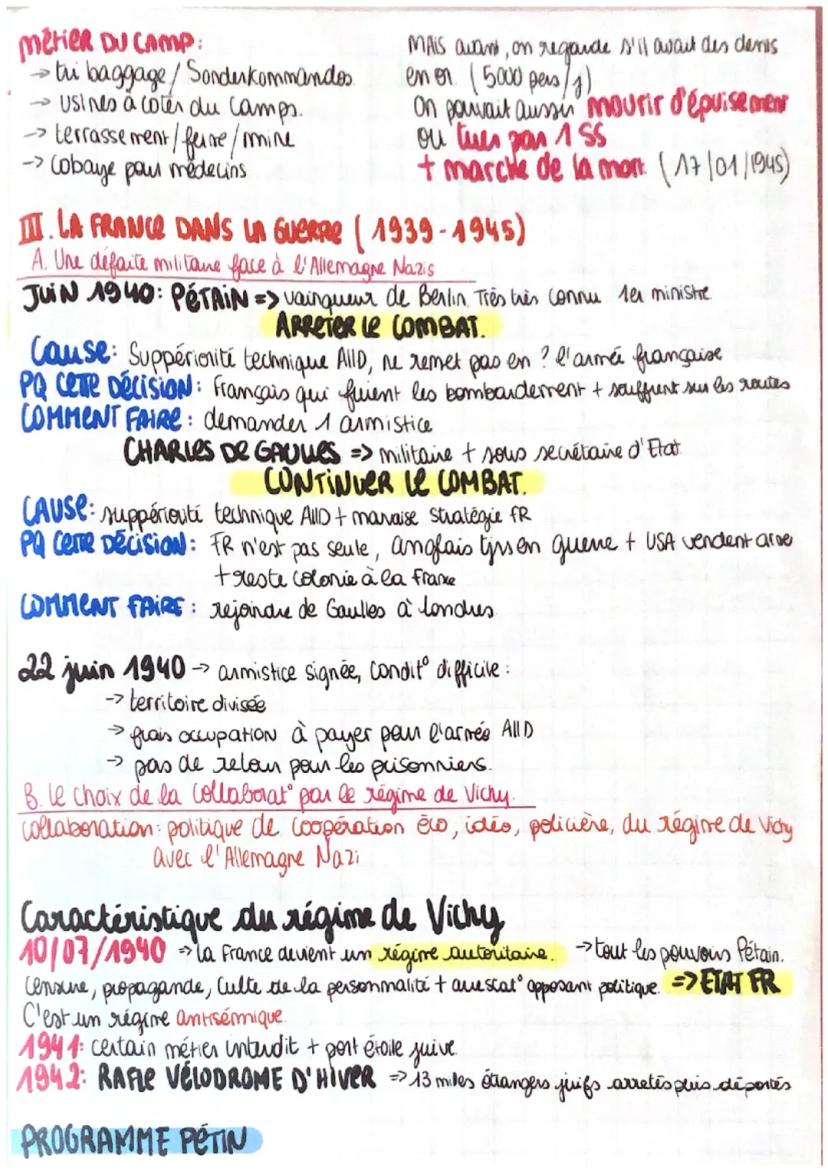 MÉTIER DU CAMP:
→ tri baggage / Sonderkommandos
→ usines a coter du camps.
→ terrassement / ferme / mine
→ cobaye pour médecins
MAIS avant, on regarde s'il avait des dents
en or. (5000 pers/j)
On pouvait aussi mourir d'épuisement
ou tuer par 1 SS
+ marche de la mort (17/01/1945)
III. LA FRANCE DANS LA GUERRE (1939-1945)
A. Une défaite militaire face à l'Allemagne Nazis
JUIN 1940: PÉTAIN => vainqueur de Berlin. Très très connu 1er ministre
ARRETER LE COMBAT.
Cause: Suppériorité technique AllD, ne remet pas en ? l'armée française
PQ CETTE DÉCISION: Français qui fuient les bombardement + souffrent sur les routes
COMMENT FAIRE: demander 1 armistice
CHARLES DE GAULLES => militaire + sous secrétaire d'Etat
CONTINUER LE COMBAT.
CAUSE: suppériorité technique AllD + mauvaise stratégie FR
PQ CETTE DÉCISION: FR n'est pas seule, anglais tjrs en guerre + USA vendent arme
+ reste colonie à la France
COMMENT FAIRE: rejoindre de Gaulles à Londres
22 juin 1940 → armistice signée, condit° difficile:
→ territoire divisée
→ frais occupation à payer pour l'armée AllD
→ pas de retour pour les prisonniers.
B. Le choix de la Collaborat° par le régime de Vichy.
Collaboration: politique de coopération éco, idéo, policière, du régime de Vichy
avec l'Allemagne Nazi
Caractéristique du régime de Vichy
10/07/1940 => la France devient un régime autoritaire. → tout les pouvoirs Pétain.
Censure, propagande, culte de la personnalité + arrestat° opposant politique. => ETAT FR
C'est un régime antisémique.
1941: certain métier interdit + port étoile juive.
1942: RAFLE VÉLODROME D'HIVER => 13 milles étrangers juifs arretés puis déportés
PROGRAMME PÉTIN